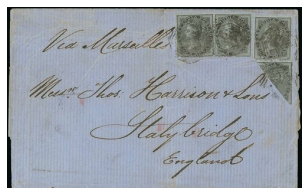 Via Marseilles
Messrs Thos. Harrison & Sons
Stalybridge
England